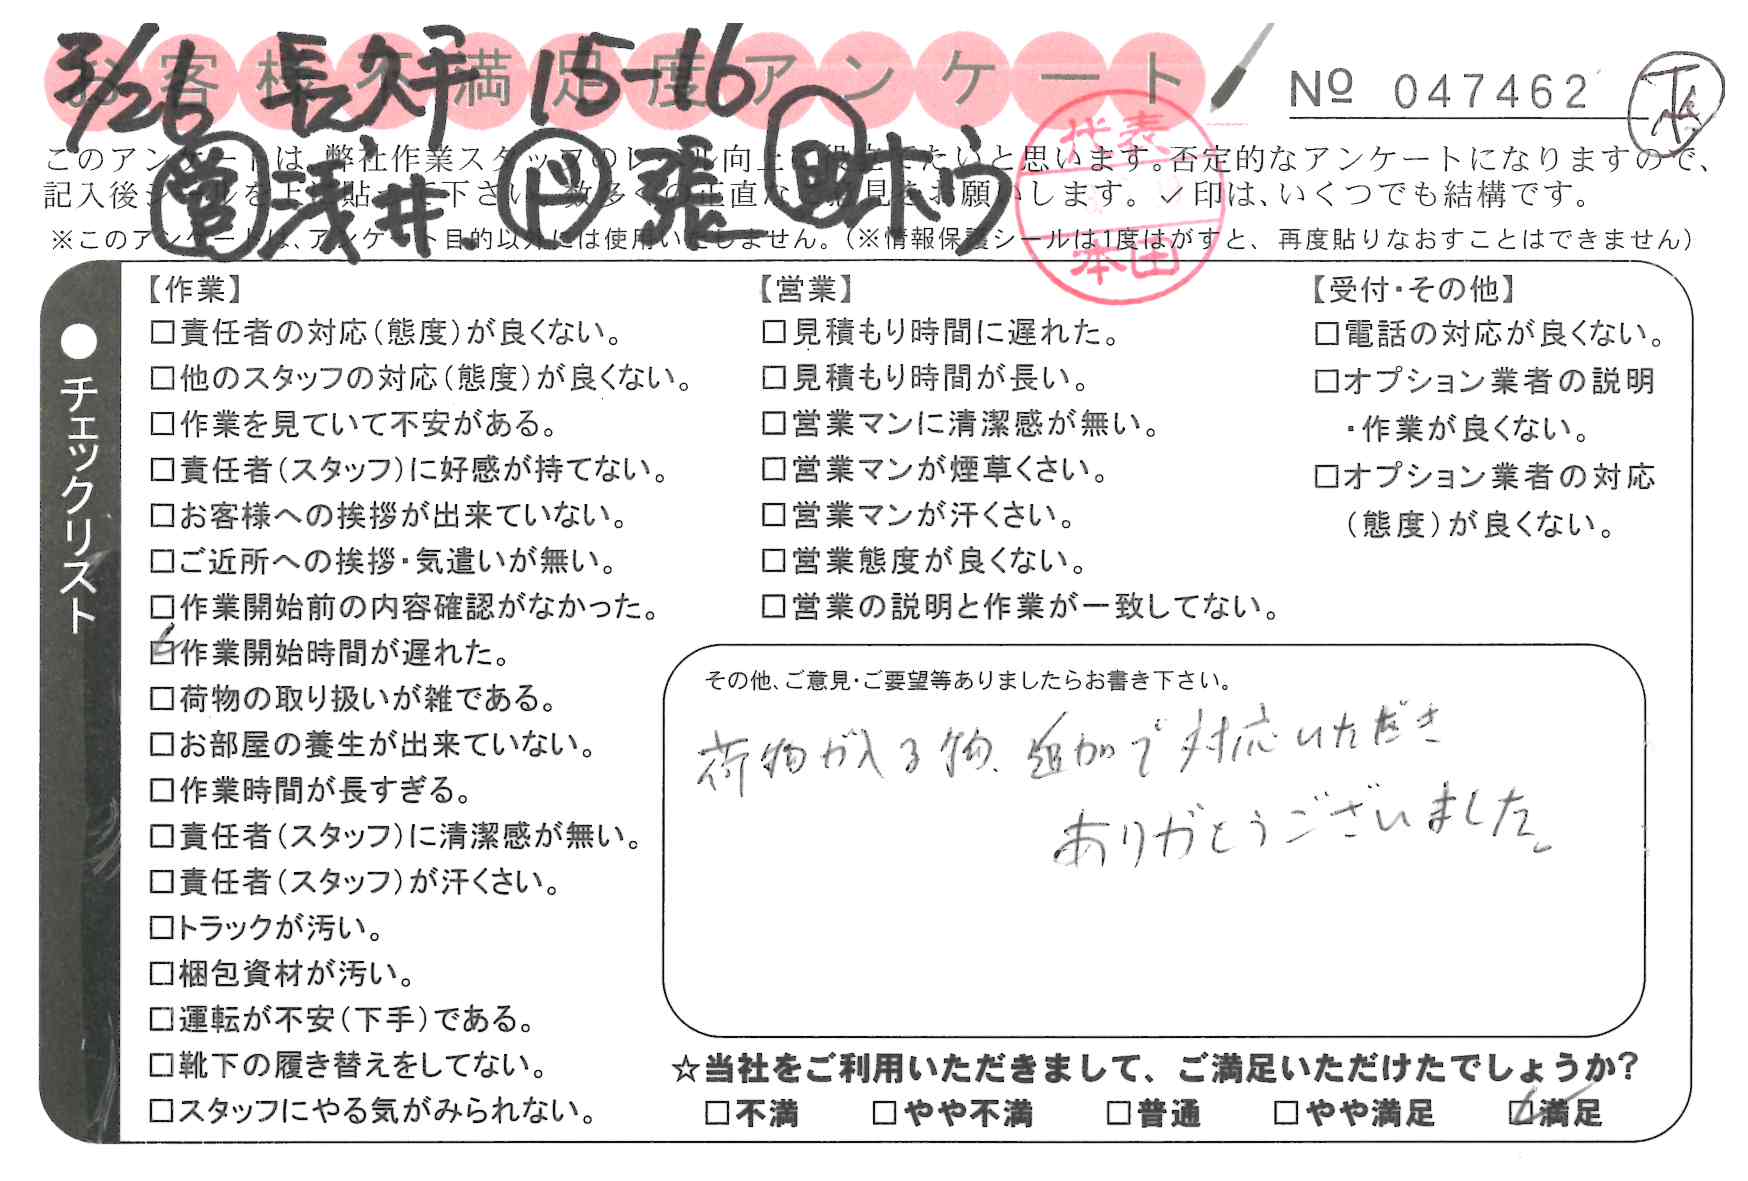 お客様不満足度アンケート
3/26 長久手 15-16
№ 047462
営 浅井 ド 張
代表
本田
このアンケートは、弊社作業スタッフのレベル向上に役立てたいと思います。否定的なアンケートになりますので、
記入後シールを上に貼って下さい。数多くの正直なご意見をお願いします。✓印は、いくつでも結構です。
※このアンケートは、アンケート目的以外には使用いたしません。(※情報保護シールは1度はがすと、再度貼りなおすことはできません)
●チェックリスト
【作業】
□責任者の対応(態度)が良くない。
□他のスタッフの対応(態度)が良くない。
□作業を見ていて不安がある。
□責任者(スタッフ)に好感が持てない。
□お客様への挨拶が出来ていない。
□ご近所への挨拶・気遣いが無い。
□作業開始前の内容確認がなかった。
☑作業開始時間が遅れた。
□荷物の取り扱いが雑である。
□お部屋の養生が出来ていない。
□作業時間が長すぎる。
□責任者(スタッフ)に清潔感が無い。
□責任者(スタッフ)が汗くさい。
□トラックが汚い。
□梱包資材が汚い。
□運転が不安(下手)である。
□靴下の履き替えをしてない。
□スタッフにやる気がみられない。
【営業】
□見積もり時間に遅れた。
□見積もり時間が長い。
□営業マンに清潔感が無い。
□営業マンが煙草くさい。
□営業マンが汗くさい。
□営業態度が良くない。
□営業の説明と作業が一致してない。
【受付・その他】
□電話の対応が良くない。
□オプション業者の説明
・作業が良くない。
□オプション業者の対応
(態度)が良くない。
その他、ご意見・ご要望等ありましたらお書き下さい。
荷物が入る物、追加で対応いただき
ありがとうございました。
☆当社をご利用いただきまして、ご満足いただけたでしょうか?
□不満 □やや不満 □普通 □やや満足 ☑満足